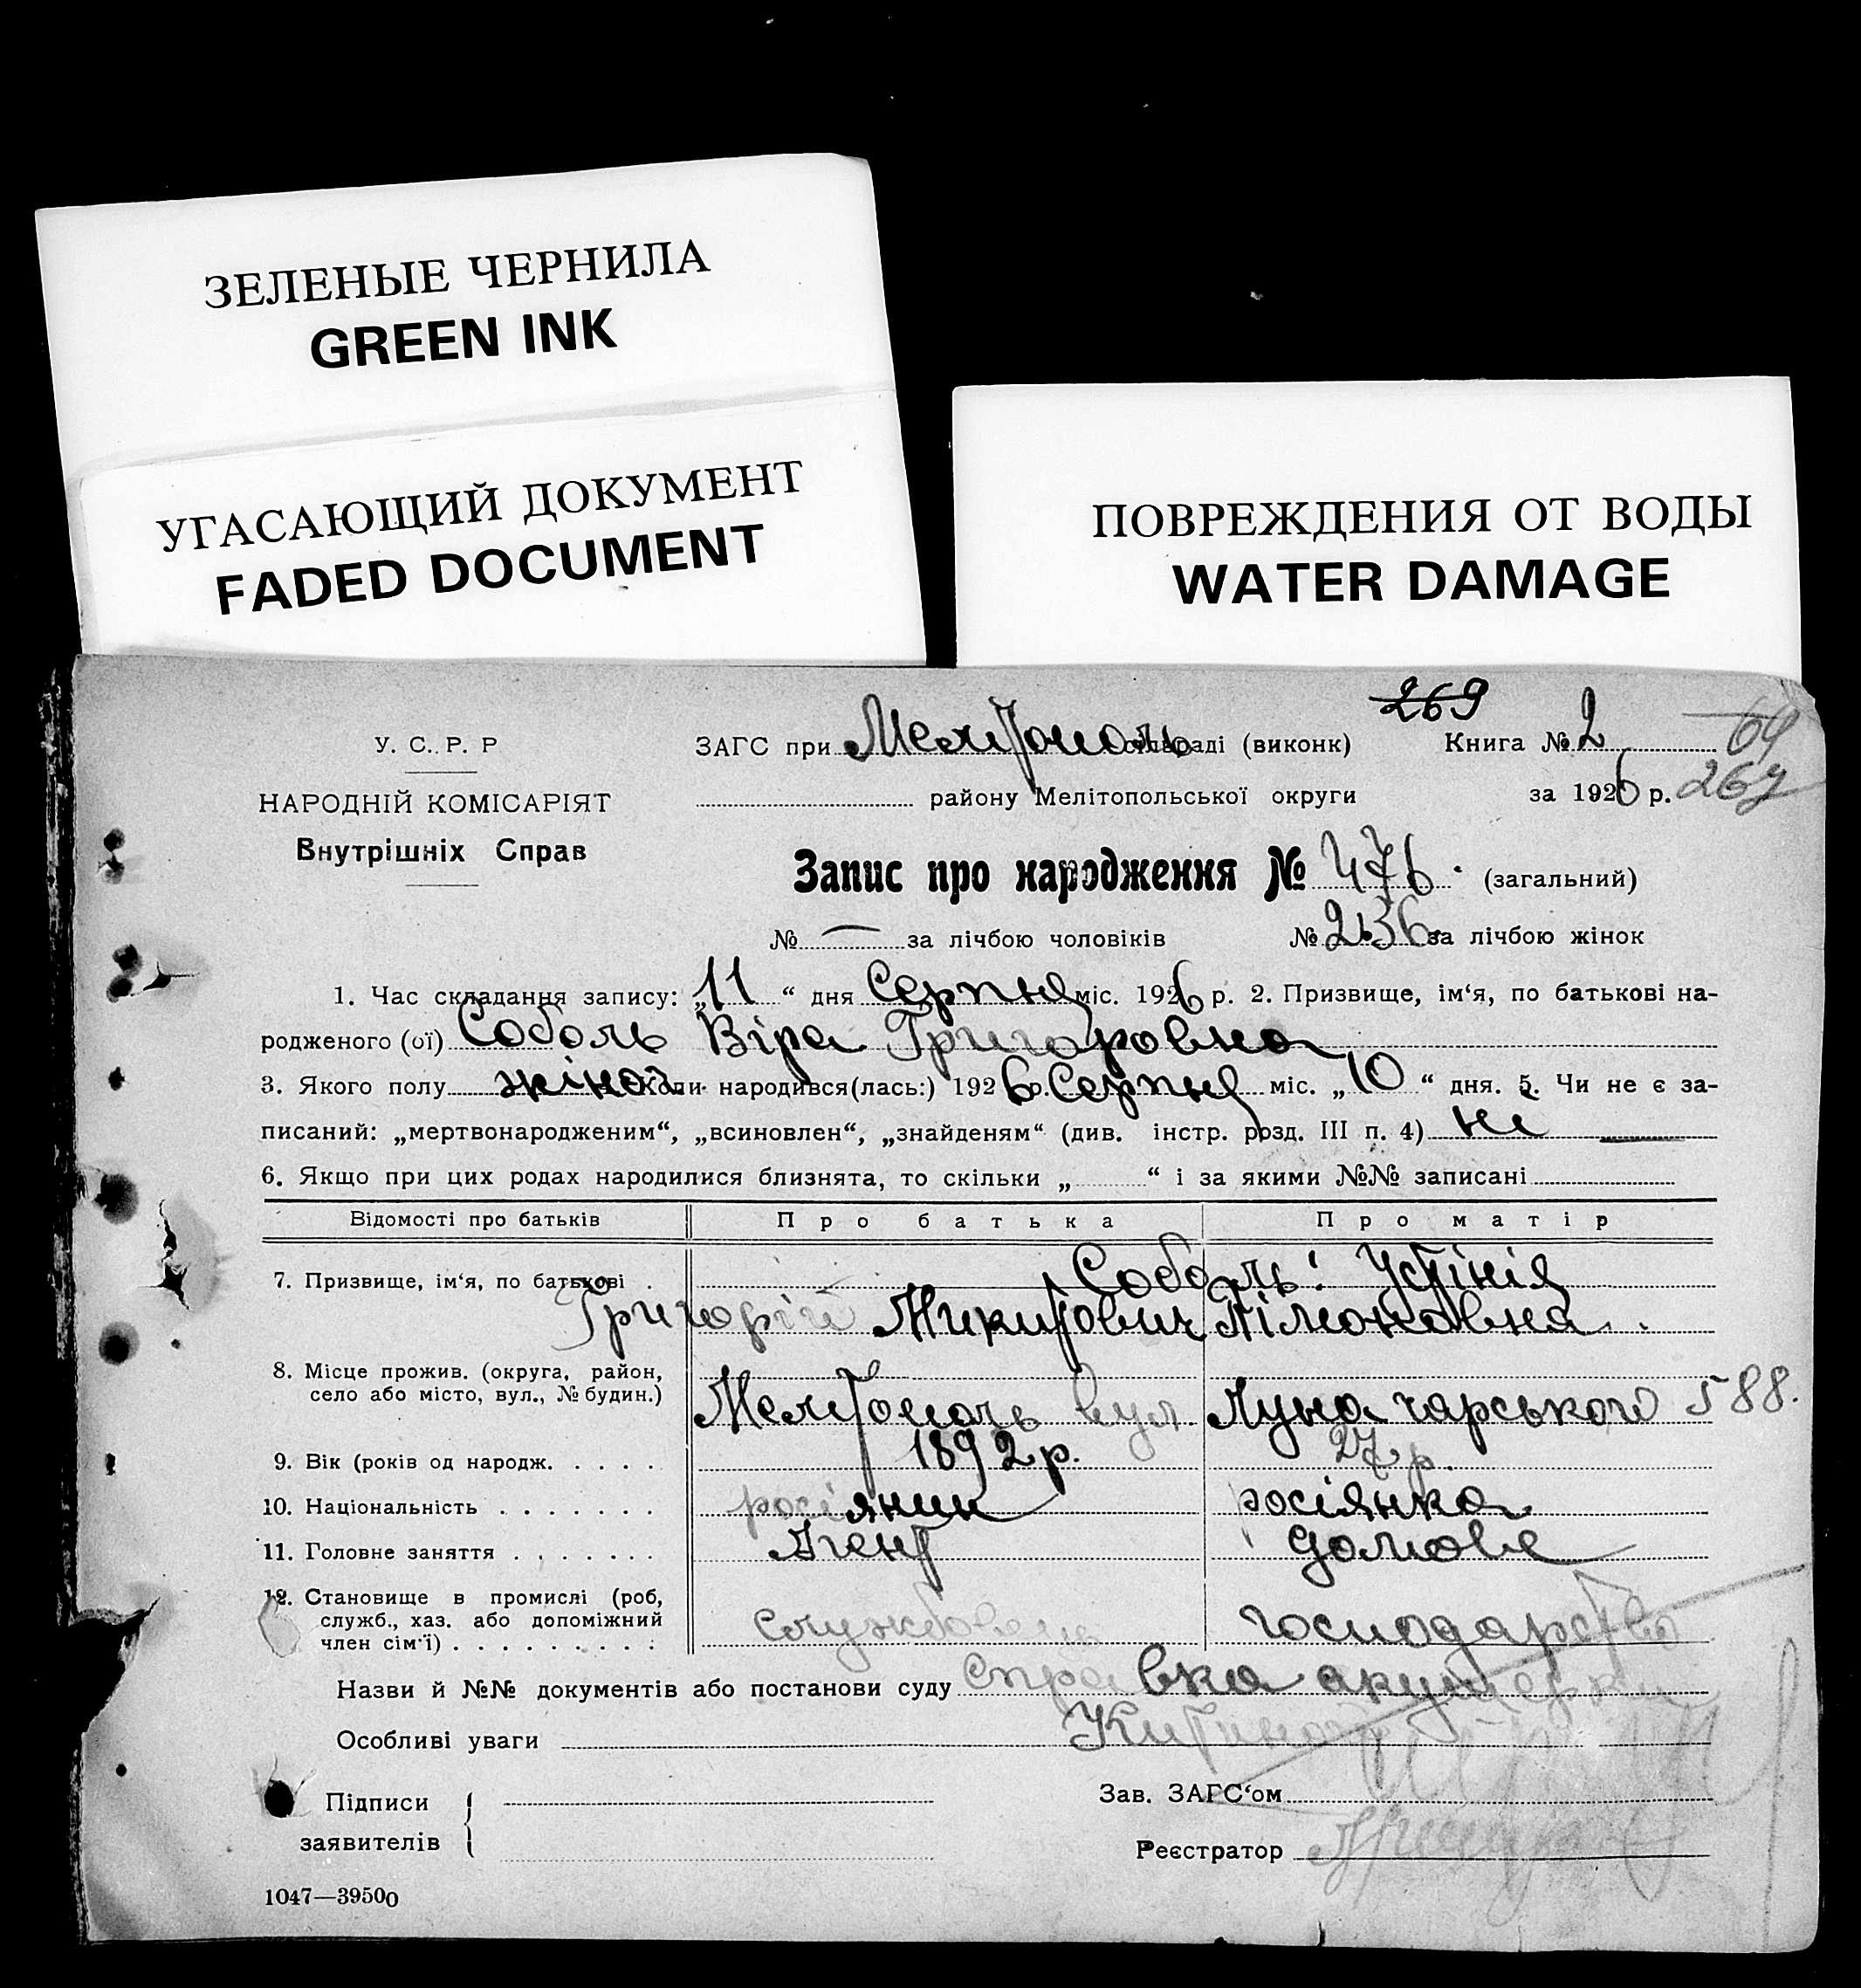 ЗЕЛЕНЫЕ ЧЕРНИЛА
GREEN INK
УГАСАЮЩИЙ ДОКУМЕНТ
FADED DOCUMENT
ПОВРЕЖДЕНИЯ ОТ ВОДЫ
WATER DAMAGE
269
У. С. Р. Р
ЗАГС при Мелітополь сільраді (виконк) Книга № 2 64
НАРОДНІЙ КОМІСАРІЯТ
району Мелітопольської округи за 1926 р. 267
Внутрішніх Справ
Запис про народження № 476. (загальний)
№ — за лічбою чоловіків № 236 за лічбою жінок
1. Час складання запису: „11“ дня Серпня міс. 1926 р. 2. Призвище, ім‘я, по батькові на-
родженого (ої) Соболь Віра Григоровна
3. Якого полу жіноч. Коли народився(лась:) 1926 р. Серпня міс. „10“ дня. 5. Чи не є за-
писаний: „мертвонародженим“, „всиновлен“, „знайденям“ (див. інстр. розд. III п. 4) ні
6. Якщо при цих родах народилися близнята, то скільки „ “ і за якими №№ записані
Відомості про батьків Про батька Про матір
7. Призвище, ім‘я, по батькові . Соболь: Устінія
Григорій Микитович Філимоновна
8. Місце прожив. (округа, район,
село або місто, вул., № будин.)
Мелітополь вул Луначарського 588.
9. Вік (років од народж. . . . . 1892 р. 27 р.
10. Національність . . . . . . . росіянин росіянка
11. Головне заняття . . . . . . . Агент домове
12. Становище в промислі (роб,
служб., хаз. або допоміжний
член сім‘ї) . . . . . . . . . службовець господарство
Назви й №№ документів або постанови суду Справка акушерки
Особливі уваги
Підписи
заявителів
Зав. ЗАГС‘ом
Реєстратор
1047—39500